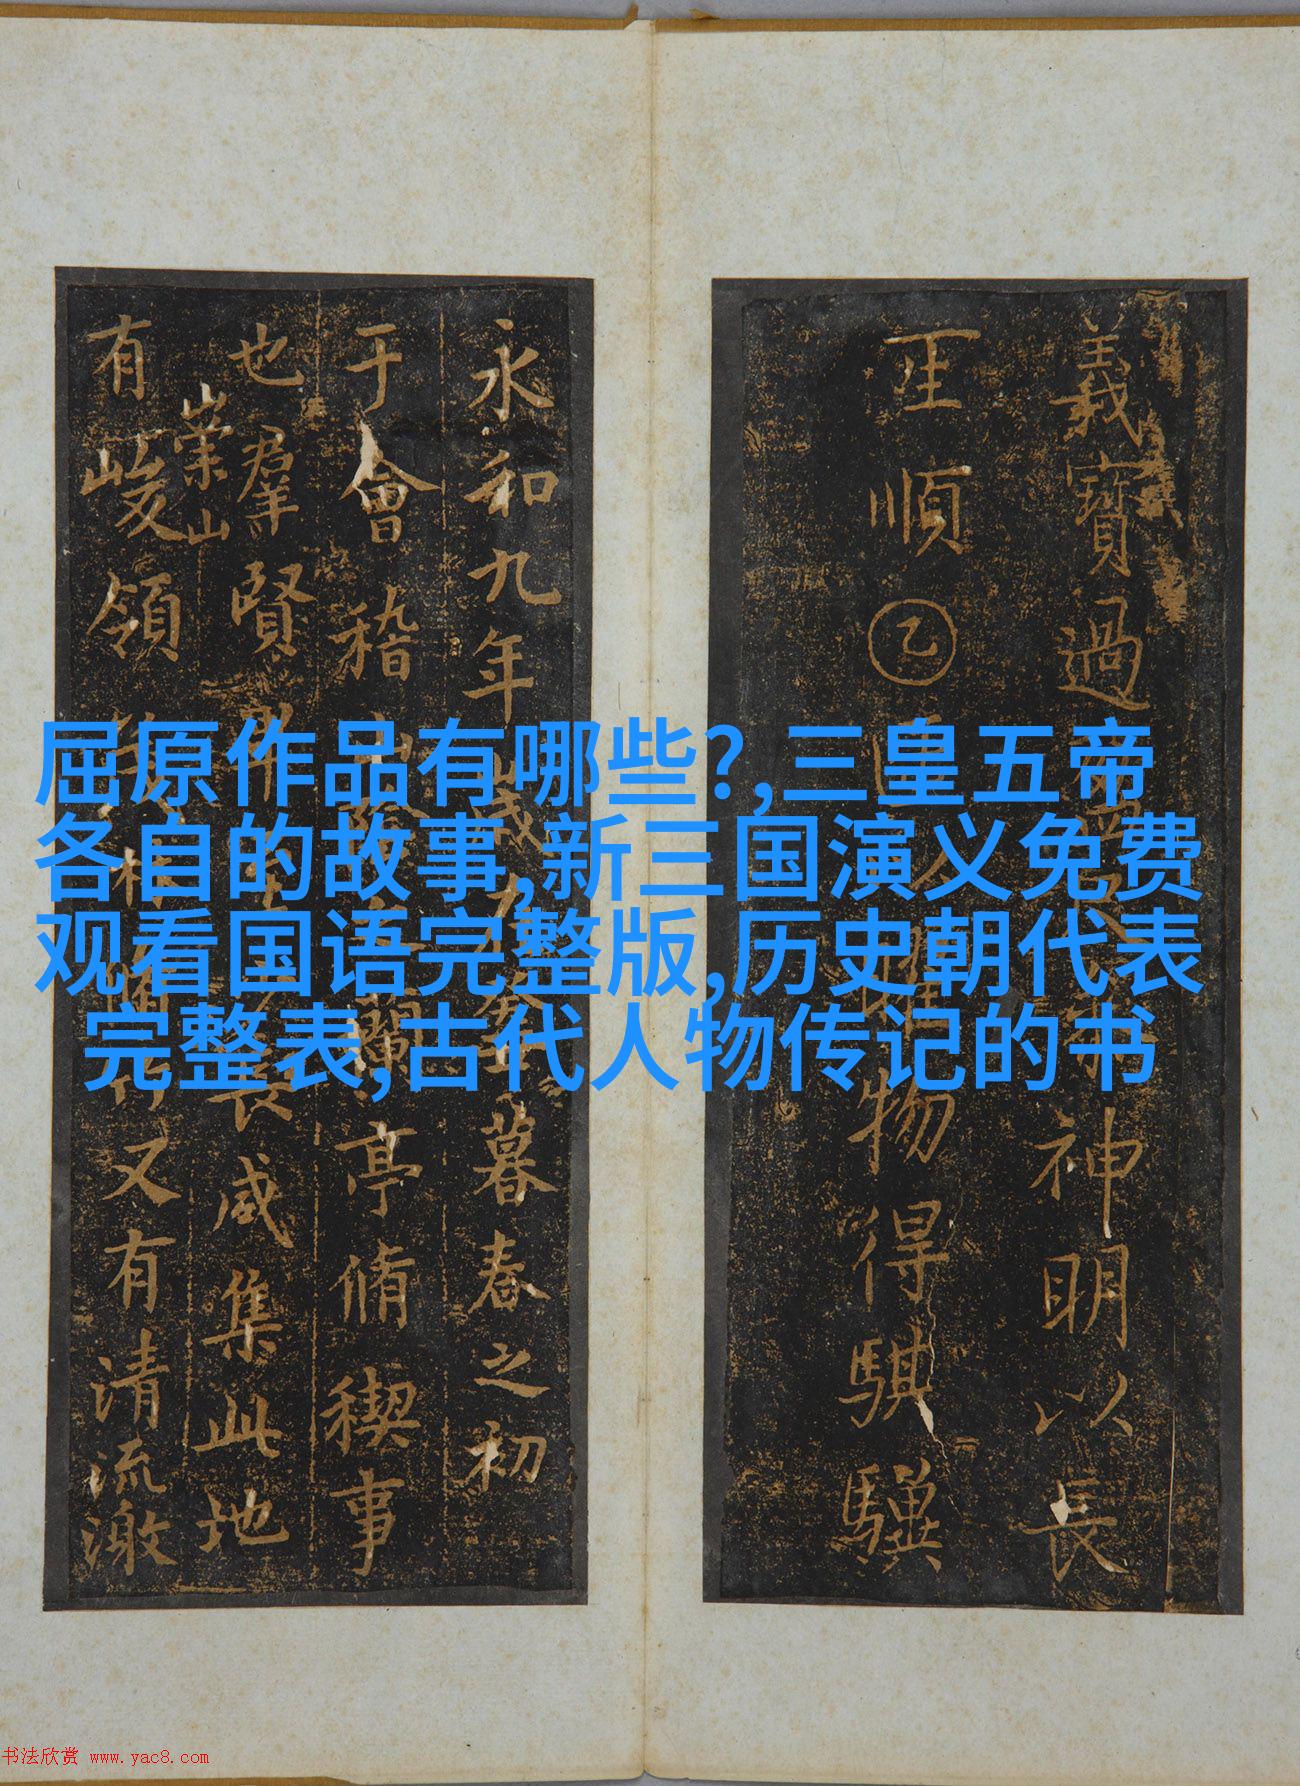 義寶過神明以長
順乙物得騏驥
永和九年歲在癸丑暮春之初
于會稽山陰之蘭亭脩禊事
也羣賢畢至少長咸集此地
崇山
有峻領茂林脩竹又有清流激
屈原作品有哪些?,三皇五帝
各自的故事,新三国演义免费
观看国语完整版,历史朝代表
完整表,古代人物传记的书
书法欣赏 www.yac8.com